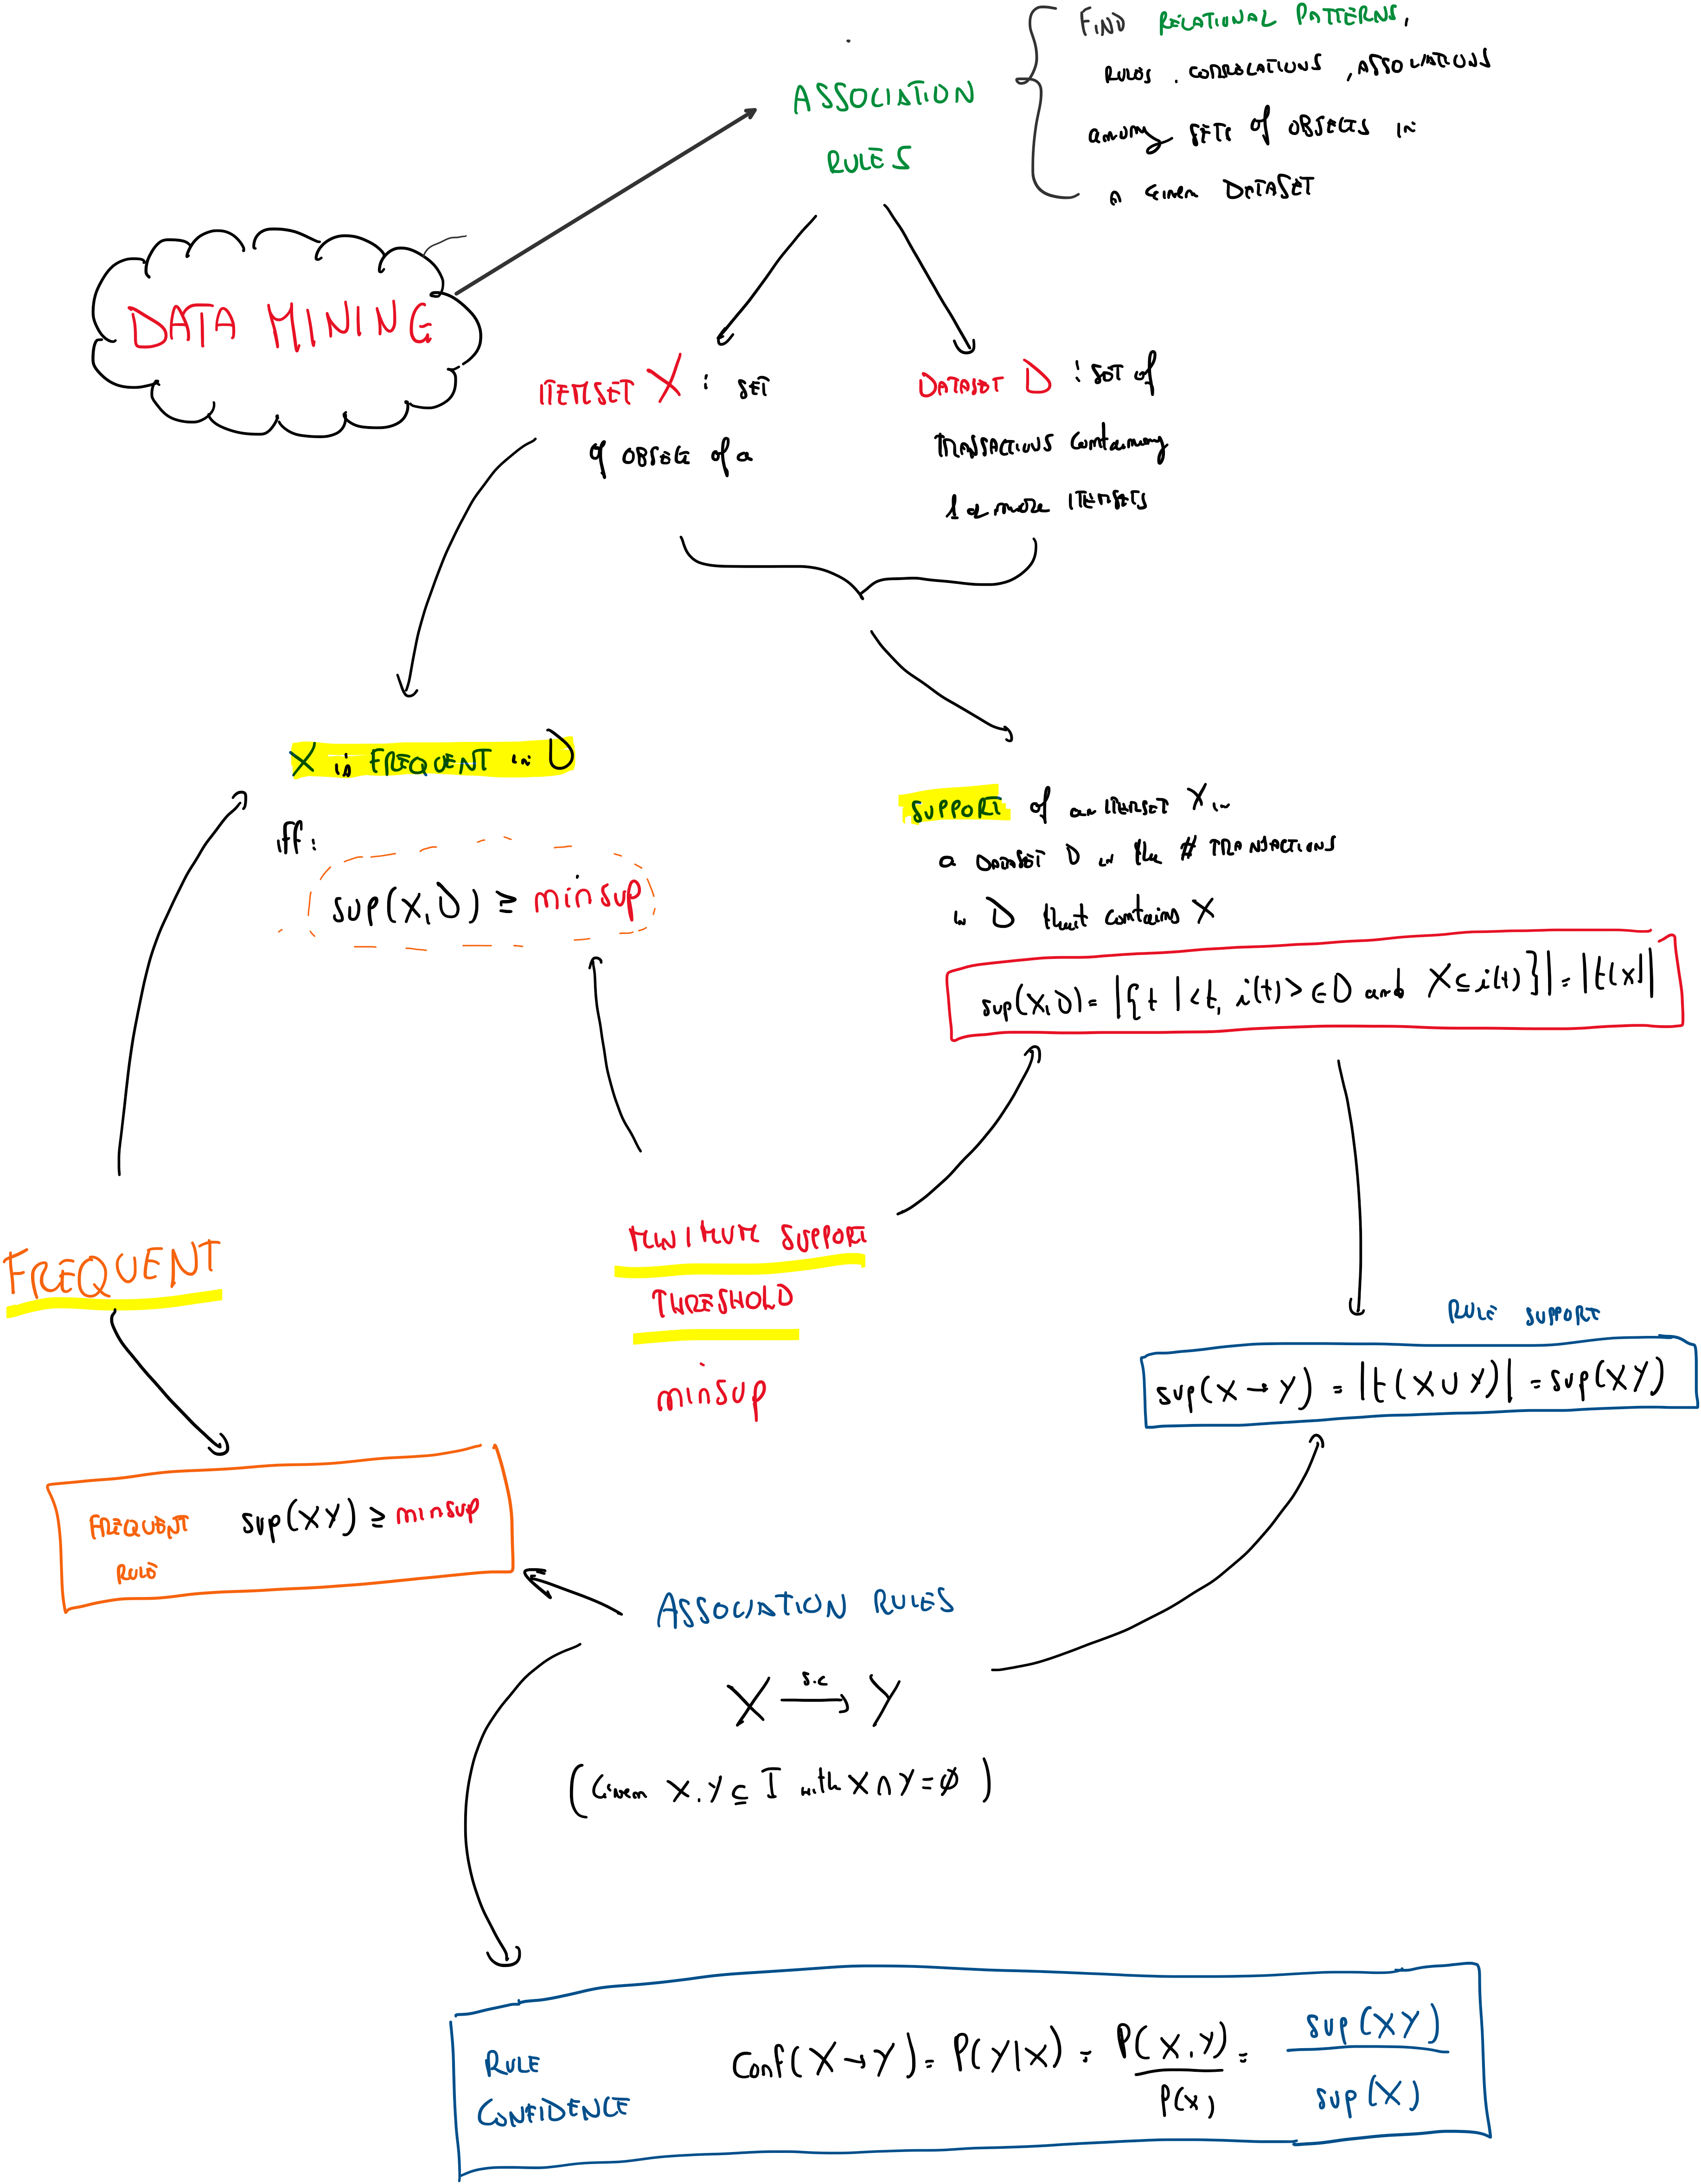 FIND RELATIONAL PATTERNS,
RULES, CORRELATIONS, ASSOCIATIONS
among SETS of OBJECTS in
a given DATASET
ASSOCIATION
RULES
DATA MINING
ITEMSET X : SET
of OBJECTS of a
DATASET D : SET of
TRANSACTIONS containing
1 or more ITEMSETS
X is FREQUENT in D
iff:
sup(X,D) ≥ minsup
SUPPORT of an ITEMSET X in
a DATASET D is the # TRANSACTIONS
in D that contains X
sup(X,D) = |{t | <t, i(t)> ∈ D and X ⊆ i(t)}| = |t(X)|
FREQUENT
MINIMUM SUPPORT
THRESHOLD
minsup
RULE SUPPORT
sup(X → Y) = |t(X ∪ Y)| = sup(XY)
FREQUENT RULE sup(XY) ≥ minsup
ASSOCIATION RULES
s,c
X → Y
(Given X, Y ⊆ I with X ∩ Y = ∅)
RULE
CONFIDENCE
Conf(X → Y) = P(Y|X) = P(X,Y) / P(X) = sup(XY) / sup(X)